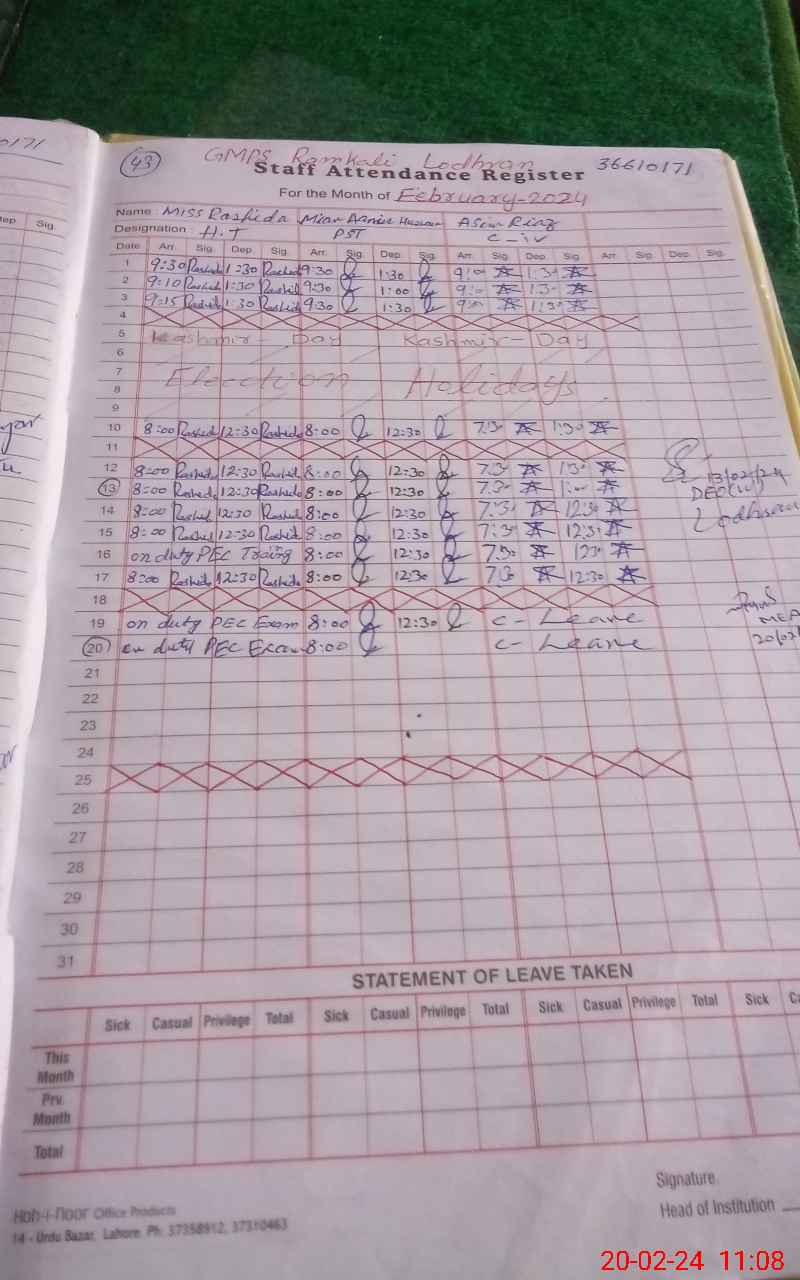 0171
43 GMPS Ramkali Lodhran 36610171
Staff Attendance Register
For the Month of February-2024
Name : Miss Rashida Mian Hussain Asim Riaz
Designation : H.T PST C-iv
Dep. Sig.
Date Arr. Sig. Dep. Sig. Arr. Sig. Dep. Sig. Arr. Sig. Dep. Sig. Arr. Sig. Dep. Sig.
1 9:30 Rashid 1:30 Rashid 9:30 1:30 9:00 1:30
2 9:10 Rashid 1:30 Rashid 9:30 1:00 9:00 1:30
3 9:15 Rashid 1:30 Rashid 9:30 1:30 9:00 1:30
4
5 Kashmir - Day Kashmir - Day
6
7
Election Holidays
8
9
10 8:00 Rashid 12:30 Rashid 8:00 12:30 7:30 1:30
11
12 8:00 Rashid 12:30 Rashid 8:00 12:30 7:30 1:30
13 8:00 Rashid 12:30 Rashid 8:00 12:30 7:30 1:00
13/02/24
DEO
Lodhran
14 8:00 Rashid 12:30 Rashid 8:00 12:30 7:30 12:30
15 8:00 Rashid 12:30 Rashid 8:00 12:30 7:30 12:30
16 on duty PEC Traing 8:00 12:30 7:30 12:30
17 8:00 Rashid 12:30 Rashid 8:00 12:30 7:30 12:30
18
19 on duty PEC Exam 8:00 12:30 C - Leave
MEA
20/02/
20 on duty PEC Exam 8:00 C - Leave
21
22
23
24
25
26
27
28
29
30
31
STATEMENT OF LEAVE TAKEN
Sick Casual Privilege Total Sick Casual Privilege Total Sick Casual Privilege Total Sick
This Month
Prv. Month
Total
Signature
Head of Institution
Koh-i-noor Office Products
14 - Urdu Bazar, Lahore. Ph: 37358912, 37310463
20-02-24 11:08